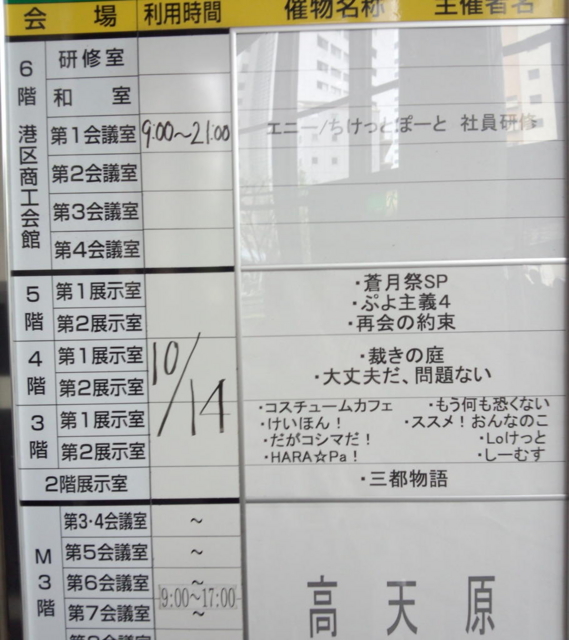 会場 利用時間 催物名称 主催者名
6階 港区商工会館
研修室
和室
第1会議室 9:00~21:00 エニー/ちけっとぽーと 社員研修
第2会議室
第3会議室
第4会議室
5階 第1展示室 ・蒼月祭SP
・ぷよ主義4
第2展示室 ・再会の約束
4階 第1展示室 10/14 ・裁きの庭
第2展示室 ・大丈夫だ、問題ない
3階 第1展示室 ・コスチュームカフェ ・もう何も恐くない
・けいほん! ・ススメ!おんなのこ
第2展示室 ・だがコシマだ! ・Loけっと
・HARA☆Pa! ・しーむす
2階展示室 ・三都物語
M3階
第3·4会議室 ~
第5会議室 ~
第6会議室 ~
9:00~17:00
第7会議室 ~ 高天原